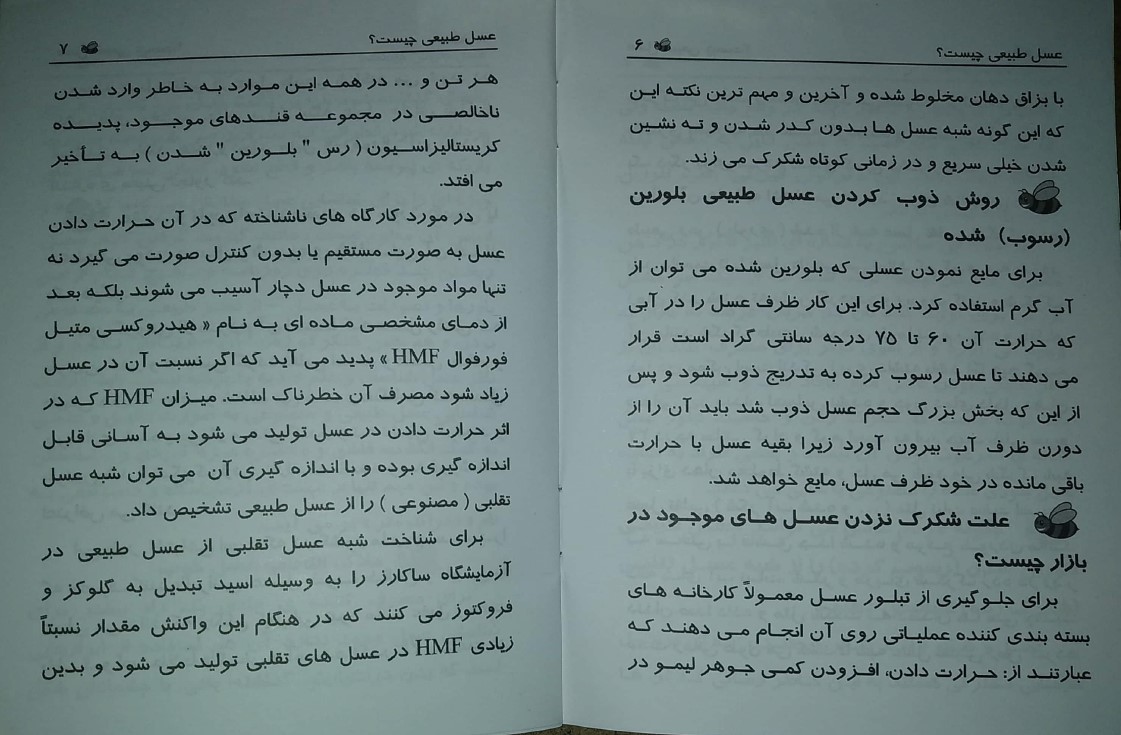 عسل طبیعی چیست؟ ۶
با بزاق دهان مخلوط شده و آخرین و مهم ترین نکته این
که این گونه شبه عسل ها بدون کدر شدن و ته نشین
شدن خیلی سریع و در زمانی کوتاه شکرک می زند.
روش ذوب کردن عسل طبیعی بلورین
(رسوب) شده
برای مایع نمودن عسلی که بلورین شده می توان از
آب گرم استفاده کرد. برای این کار ظرف عسل را در آبی
که حرارت آن ۶۰ تا ۷۵ درجه سانتی گراد است قرار
می دهند تا عسل رسوب کرده به تدریج ذوب شود و پس
از این که بخش بزرگ حجم عسل ذوب شد باید آن را از
دورن ظرف آب بیرون آورد زیرا بقیه عسل با حرارت
باقی مانده در خود ظرف عسل، مایع خواهد شد.
علت شکرک نزدن عسل های موجود در
بازار چیست؟
برای جلوگیری از تبلور عسل معمولاً کارخانه های
بسته بندی کننده عملیاتی روی آن انجام می دهند که
عبارتند از: حرارت دادن، افزودن کمی جوهر لیمو در
عسل طبیعی چیست؟ ۷
هر تن و ... در همه این موارد به خاطر وارد شدن
ناخالصی در مجموعه قندهای موجود، پدیده
کریستالیزاسیون ( رس " بلورین " شدن ) به تأخیر
می افتد.
در مورد کارگاه های ناشناخته که در آن حرارت دادن
عسل به صورت مستقیم یا بدون کنترل صورت می گیرد نه
تنها مواد موجود در عسل دچار آسیب می شوند بلکه بعد
از دمای مشخصی ماده ای به نام « هیدروکسی متیل
فورفوال HMF» پدید می آید که اگر نسبت آن در عسل
زیاد شود مصرف آن خطرناک است. میزان HMF که در
اثر حرارت دادن در عسل تولید می شود به آسانی قابل
اندازه گیری بوده و با اندازه گیری آن می توان شبه عسل
تقلبی ( مصنوعی ) را از عسل طبیعی تشخیص داد.
برای شناخت شبه عسل تقلبی از عسل طبیعی در
آزمایشگاه ساکارز را به وسیله اسید تبدیل به گلوکز و
فروکتوز می کنند که در هنگام این واکنش مقدار نسبتاً
زیادی HMF در عسل های تقلبی تولید می شود و بدین